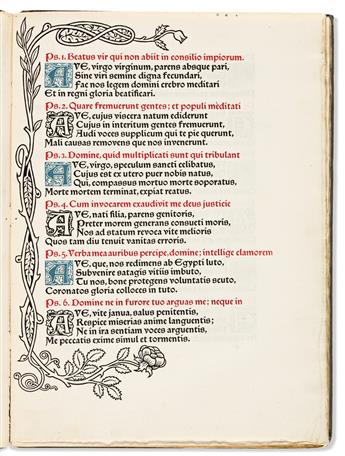 Ps. 1. Beatus vir qui non abiit in consilio impiorum.
AVE, virgo virginum, parens absque pari,
Sine viri semine digna fecundari,
Fac nos legem domini crebro meditari
Et in regni gloria beatificari.
Ps. 2. Quare fremuerunt gentes; et populi mèditati
AVE, cujus viscera natum ediderunt
Cujus in interitum gentes fremuerunt,
Audi voces supplicum qui te pie querunt,
Mali causas removens que nos invenerunt.
Ps. 3. Domine, quid multiplicati sunt qui tribulant
AVE, virgo, speculum sancti celibatus,
Cujus est ex utero puer nobis natus,
Qui, compassus mortuo morte soporatus,
Morte mortem terminat, expiat reatus.
Ps. 4. Cum invocarem exaudivit me deus justicie
AVE, nati filia, parens genitoris,
Preter morem generans consueti moris,
Nos ad statum revoca vite melioris
Quos tam diu tenuit vanitas erroris.
Ps. 5. Verba mea auribus percipe, domine; intellige clamorem
AVE, que, nos redimens ab Egypti luto,
Subvenire satagis vitiis imbuto,
Tu nos, bone protegens voluntatis scuto,
Coronatos gloria colloces in tuto.
Ps. 6. Domine ne in furore tuo arguas me; neque in
AVE, vite janua, salus penitentis,
Respice miserias anime languentis;
Ne in ira sentiam voces arguentis,
Me peccatis exime simul et tormentis.